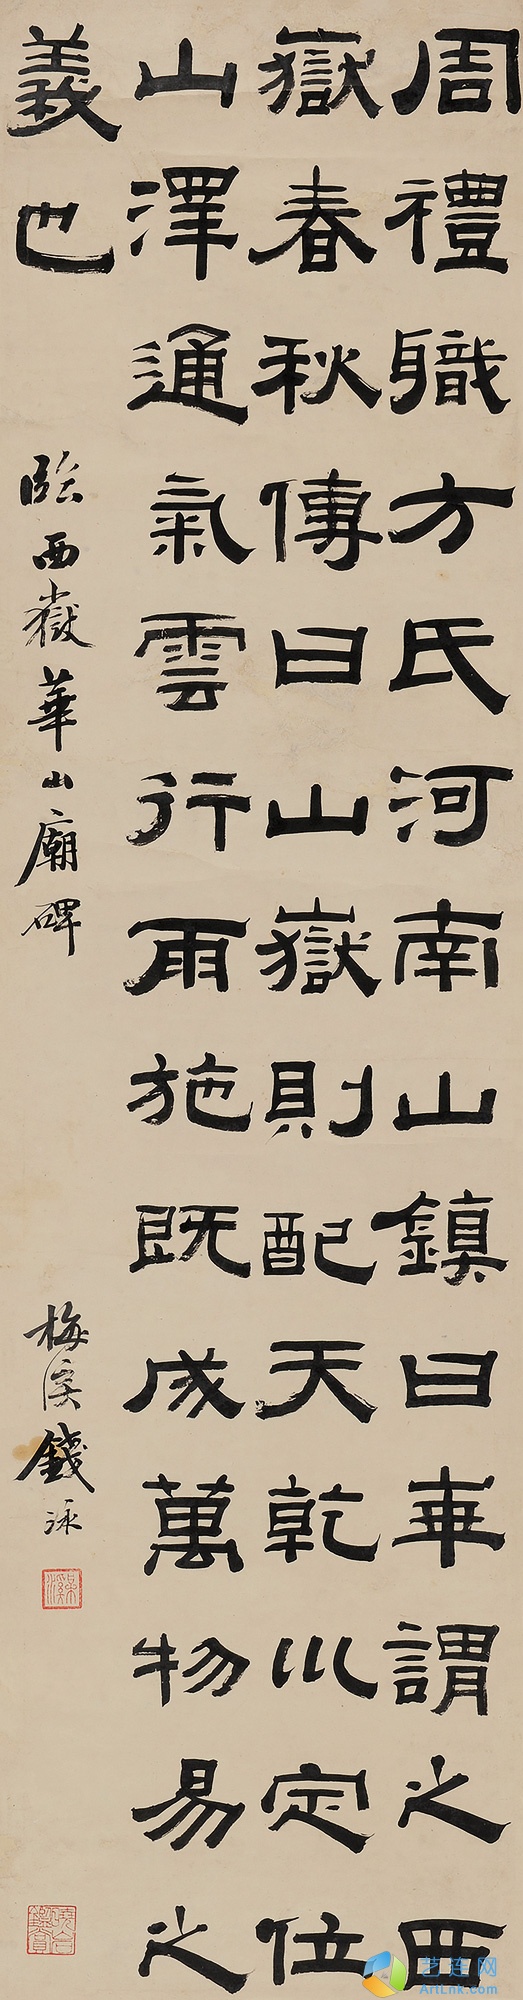 周禮職方氏河南山鎮曰華謂之西
嶽春秋傳曰山嶽則配天乾川定位
山澤通氣雲行雨施既成萬物易之
義也
臨西嶽華山廟碑
梅溪錢泳
艺连网
ArtLnk.com